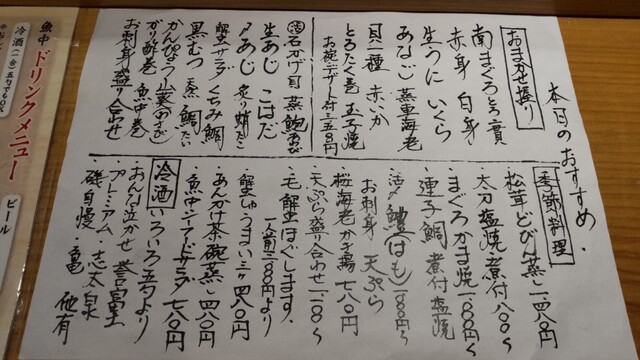 本日のおすすめ
おまかせ握り
南まぐろとろ二貫
赤身 白身
生うに いくら
あなご 蒸車海老
貝一種 赤いか
とろたく巻 玉子焼
お椀・デザート付 三五八〇円
石かげ貝 蒸鮑
生あじ こはだ
〆あじ 炙り蛸
蟹サラダ くちみ鯛
黒むつ 天然鯛
かんぴょう 山葵
がり酢巻 魚中巻
お刺身盛り合わせ
季節料理
松茸どびん蒸し 一四八〇円
太刀塩焼 煮付 八八〇〜
まぐろかま焼 一八〇〇円〜
連子鯛 煮付 塩焼
活〆鱧(はも)一八〇〇円〜
お刺身 天ぷら
桜海老かき揚 七八〇円
天ぷら盛り合わせ
・毛蟹ほぐします。
一人前二八〇〇円より
蟹しゅうまい 三ヶ 四八〇円
あんかけ茶碗蒸し 四八〇円
魚中シーフードサラダ 七八〇円
冷酒
いろいろ五勺より
・おんな泣かせ・誉富士
・プレミアム・志太泉
・磯自慢・亀 他有
魚中ドリンクメニュー
冷酒
ビール